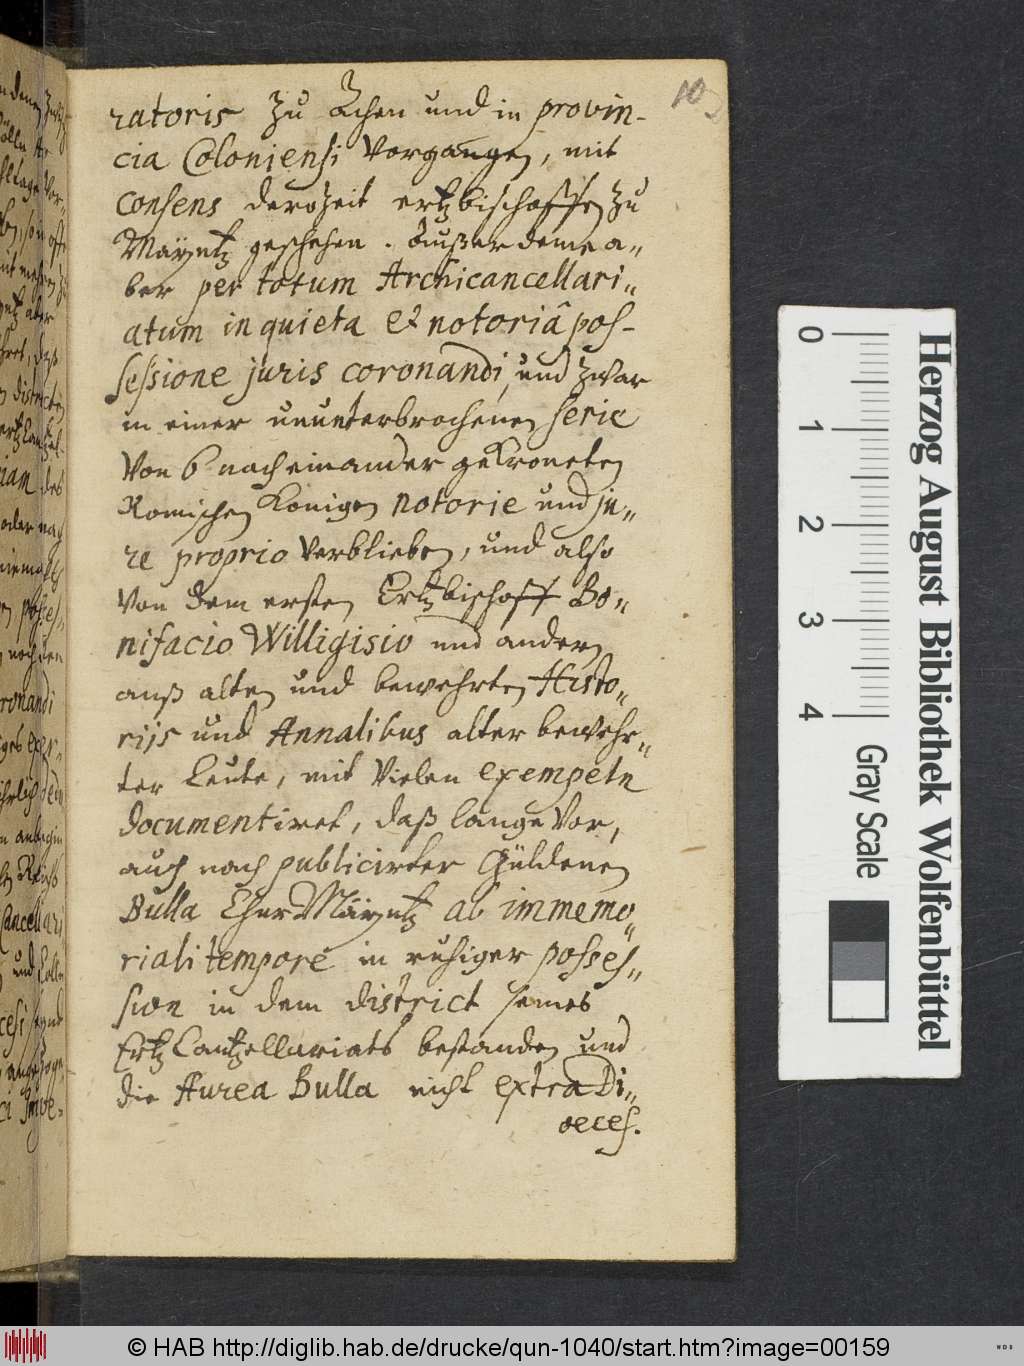 10
ratoris zu Achen und in provin-
cia Coloniensi vorgangen, mit
consens derozeit ertzbischoffen zu
Mäyntz geschehen. Außer deme a„
ber per totum Archicancellari„
atum in quieta et notoriâ pos-
sessione juris coronandi, und zwar
in einer ununterbrochenen serie
von 6 nach einander gekroneten
Romischen Konigen notorie und ju„
re proprio verblieben, und also
von dem ersten Ertzbischoff Bo„
nifacio Willigisio und andern
auß alten und bewehrten Histo„
rijs und Annalibus alter bewehr„
ter Leute, mit vielen exempeln
documentiret, daß lange vor,
auch nach publicirter Güldenen
Bulla ChurMäyntz ab immemo„
riali tempore in ruhiger posses„
sion in dem district seines
ErtzCantzellariats bestanden und
die Aurea Bulla nicht extra Di„
oeces.
0 1 2 3 4
Gray Scale
Herzog August Bibliothek Wolfenbüttel
© HAB http://diglib.hab.de/drucke/qun-1040/start.htm?image=00159